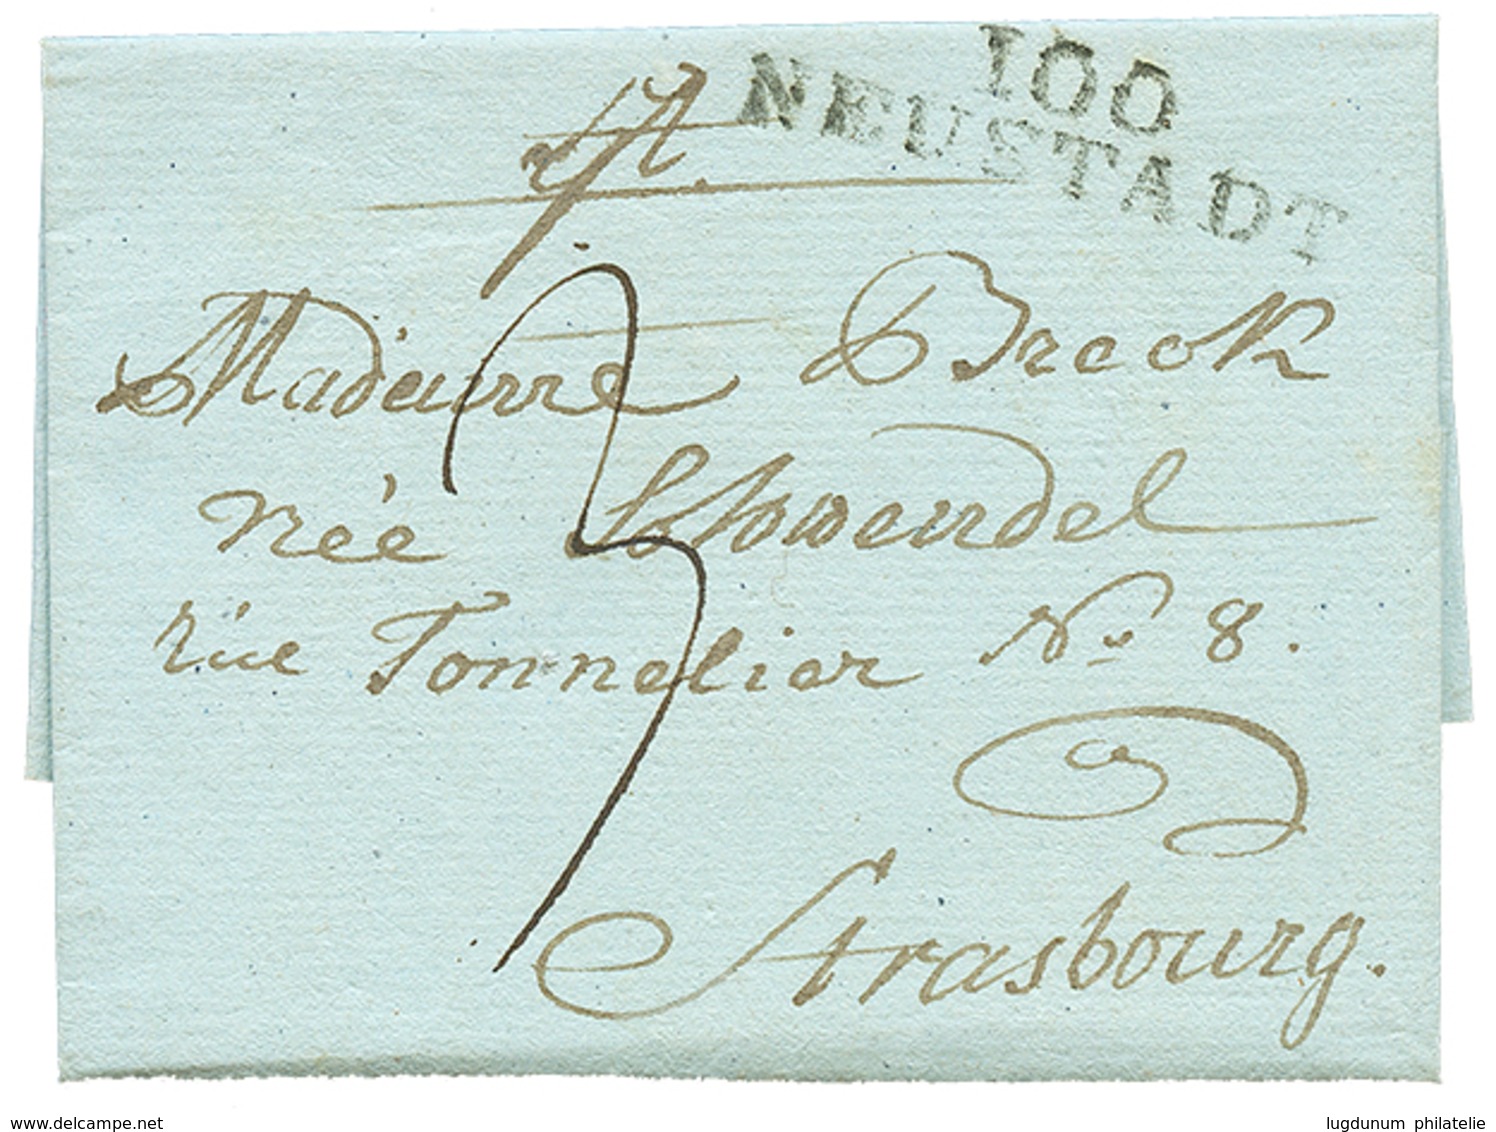 100
NEUSTADT
Madame Breck
née Schwendel
rüe Tonnelier No 8.
3
a
Strasbourg.
www.delcampe.net
lugdunum philatelie